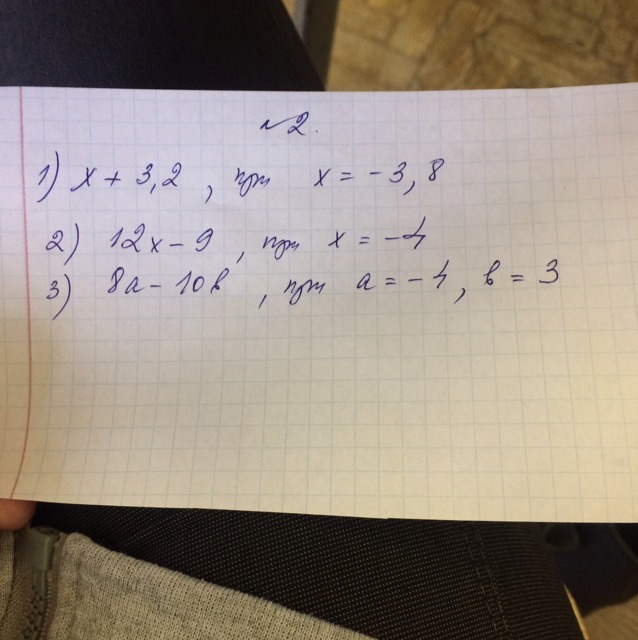 №2.
1) x + 3,2 , при x = -3,8
2) 12x - 9 , при x = -4
3) 8a - 10b , при a = -4, b = 3